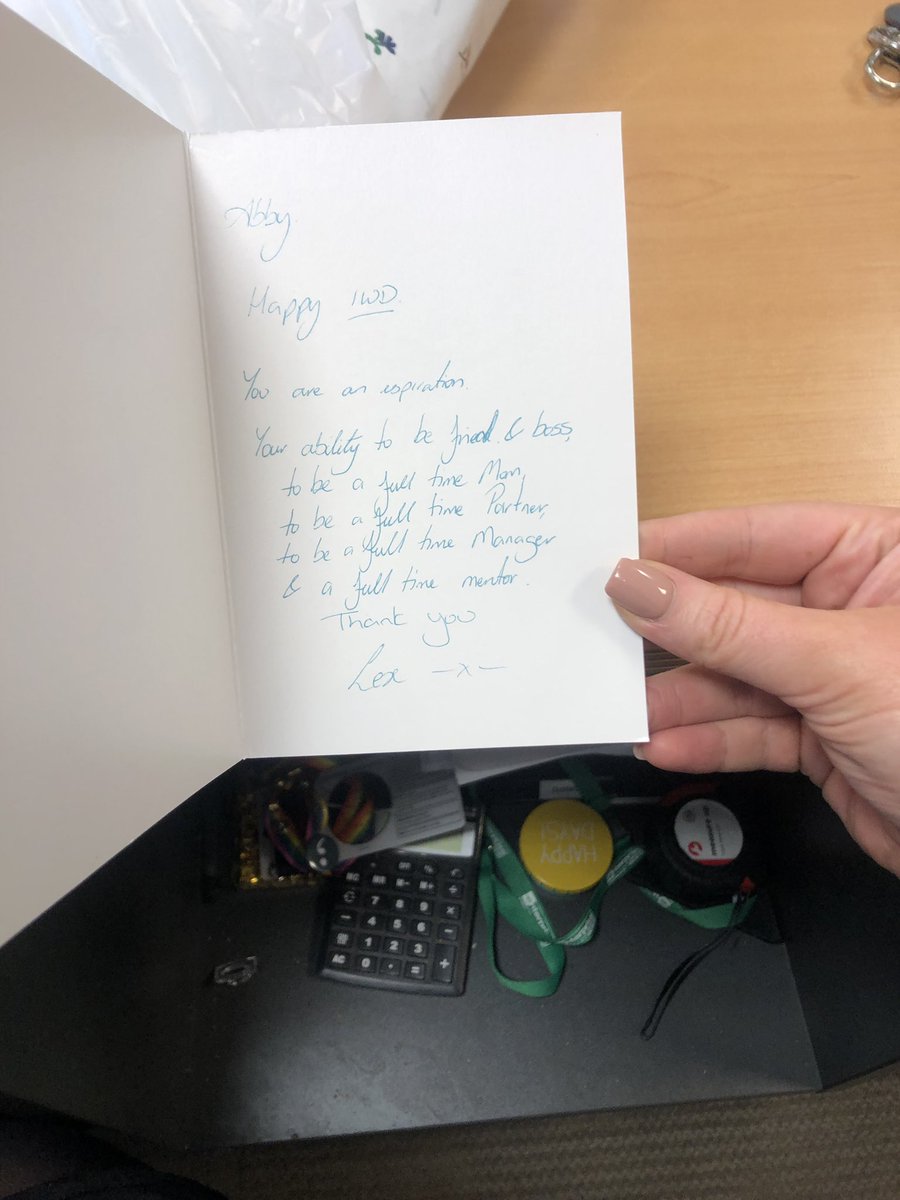 Abby.
Happy IWD.
You are an ispiration.
Your ability to be friend & boss,
to be a full time Mam,
to be a full time Partner,
to be a full time Manager
& a full time mentor.
Thank you
Lex -x-
HAPPY
DAYS!
OFF
%
MC MR M- M+ ÷
7 8 9 ×
4 5 6 −
1 2 3
AC 0 . = +